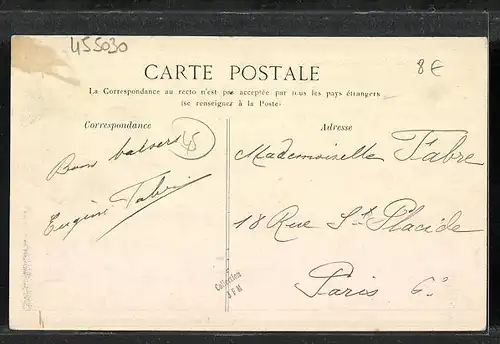 455030
8€
CARTE POSTALE
La Correspondance au recto n'est pas acceptée par tous les pays étrangers
(se renseigner à la Poste)
Correspondance
45
Bons baisers
Eugène Fabre
Adresse
Mademoiselle Fabre
18 Rue St Placide
Paris 6e
Collection
J F M